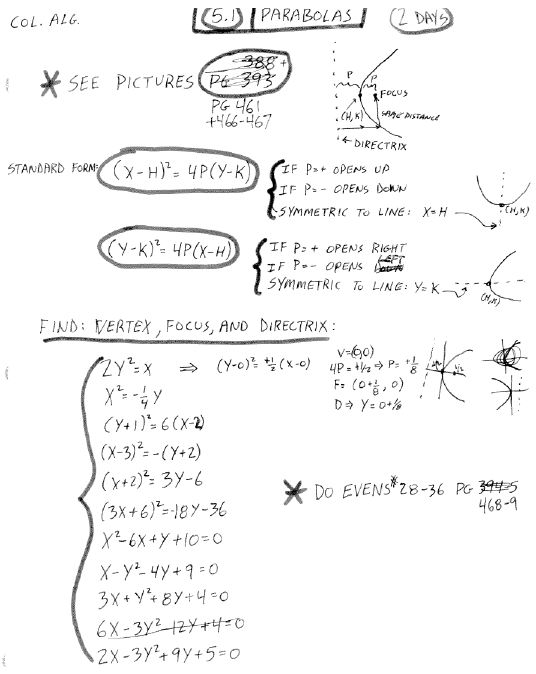 COL. ALG. 5.1 PARABOLAS 2 DAYS
* SEE PICTURES 388 +
PG 393
PG 461
+466-467
P P
FOCUS
(H,K) SAME DISTANCE
DIRECTRIX
STANDARD FORM: (X-H)² = 4P(Y-K)
IF P=+ OPENS UP
IF P=- OPENS DOWN
SYMMETRIC TO LINE: X=H
(H,K)
(Y-K)² = 4P(X-H)
IF P=+ OPENS RIGHT
IF P=- OPENS LEFT
SYMMETRIC TO LINE: Y=K
(H,K)
FIND: VERTEX, FOCUS, AND DIRECTRIX:
2Y²=X ⇒ (Y-0)² = +½(X-0)
V=(0,0)
4P=+1/2 ⇒ P=+1/8
F= (0+1/8, 0)
D ⇒ Y=0+1/8
X²=-¼Y
(Y+1)²=6(X-2)
(X-3)²=-(Y+2)
(X+2)²=3Y-6
(3X+6)²=-18Y-36
X²-6X+Y+10=0
X-Y²-4Y+9=0
3X+Y²+8Y+4=0
6X-3Y²-12Y+4=0
2X-3Y²+9Y+5=0
* DO EVENS* 28-36 PG 394-5
468-9